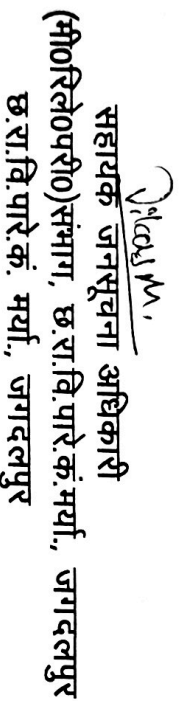 सहायक जनसूचना अधिकारी
(मी०रिले०परी०)संभाग, छ.रा.वि.पारे.कं.मर्या., जगदलपुर
छ.रा.वि.पारे.कं. मर्या., जगदलपुर